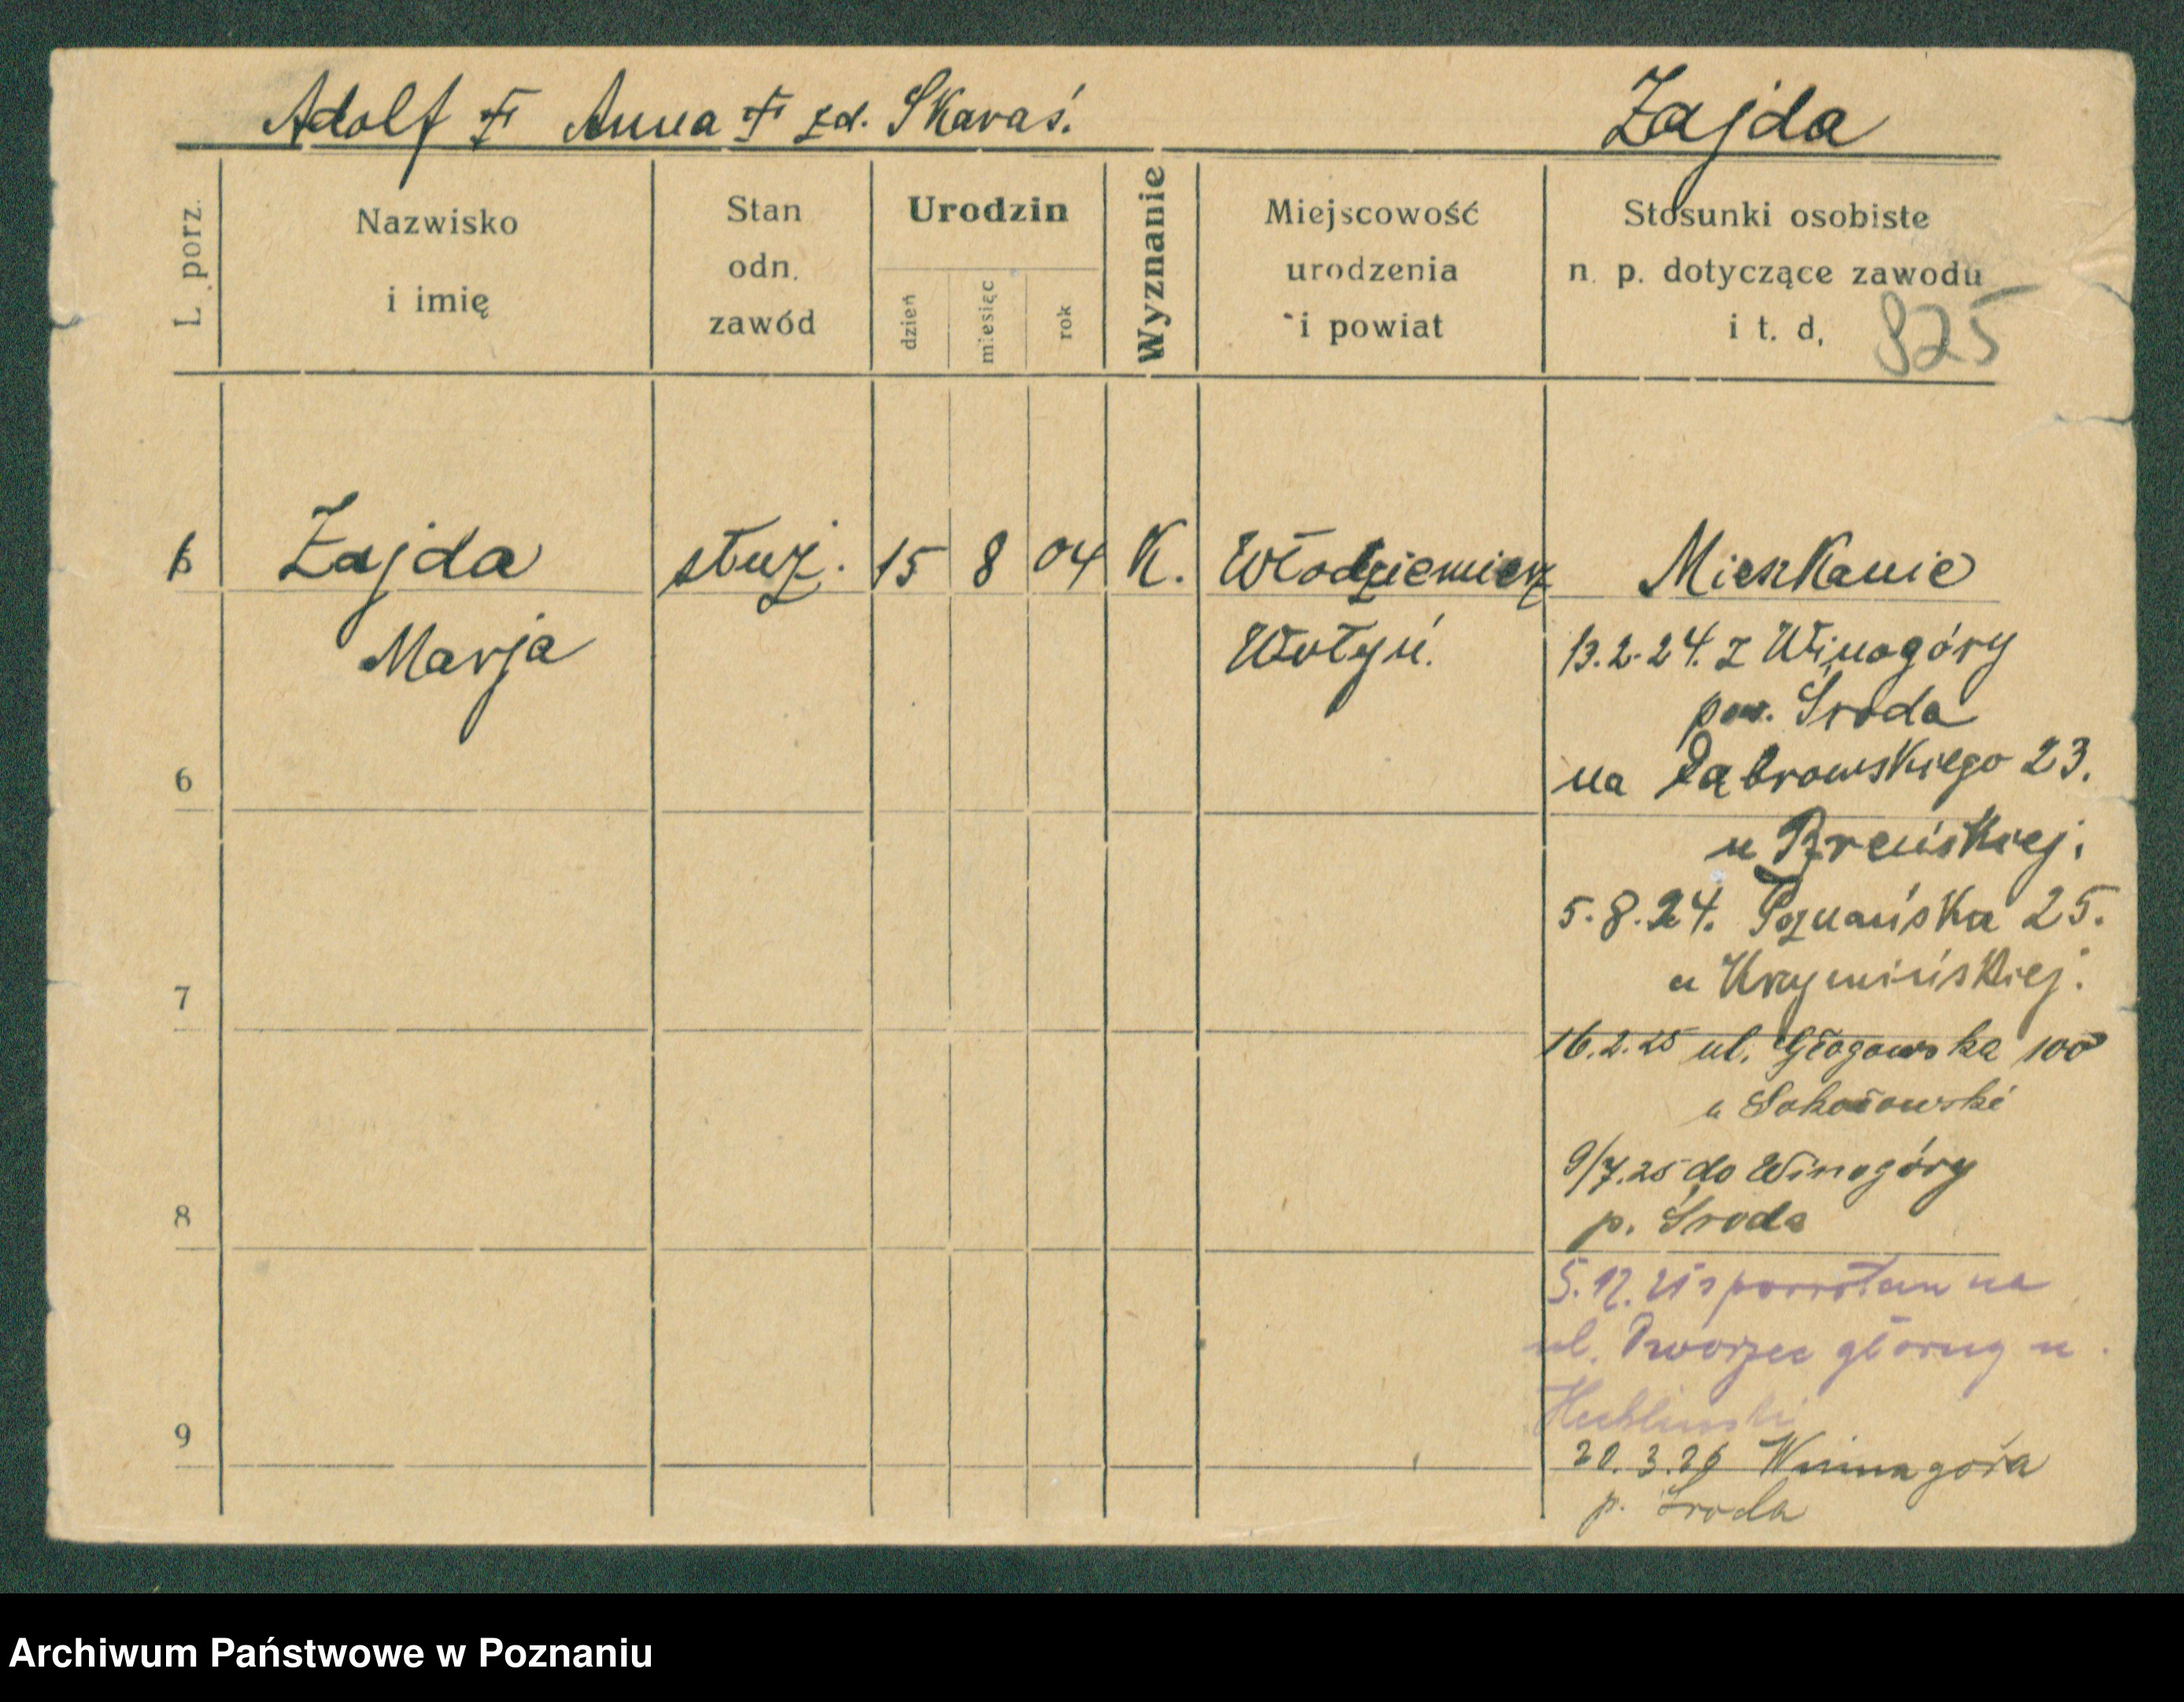 Adolf † Anna † zd. Skaraś. Zajda
L. porz.
Nazwisko i imię
Stan odn. zawód
Urodzin
dzień miesiąc rok
Wyznanie
Miejscowość urodzenia i powiat
Stosunki osobiste n. p. dotyczące zawodu i t. d.
925
Zajda służ. 15 8 04 K. Włodziemierz Mieszkanie
Marja Wołyń. 13.2.24. z Winogóry
pow. Środa
6 na Dąbrowskiego 23.
u
5.8.24. Poznańska 25.
u Krzymińskiej.
7
16.2.25 ul. Głogowska 100
u Sokołowski
9/7.25 do Winogóry
8 p. Środa
5.12. na
ul. Dworzec główny u
9
20.3.26 Winnagóra
p. Środa
Archiwum Państwowe w Poznaniu